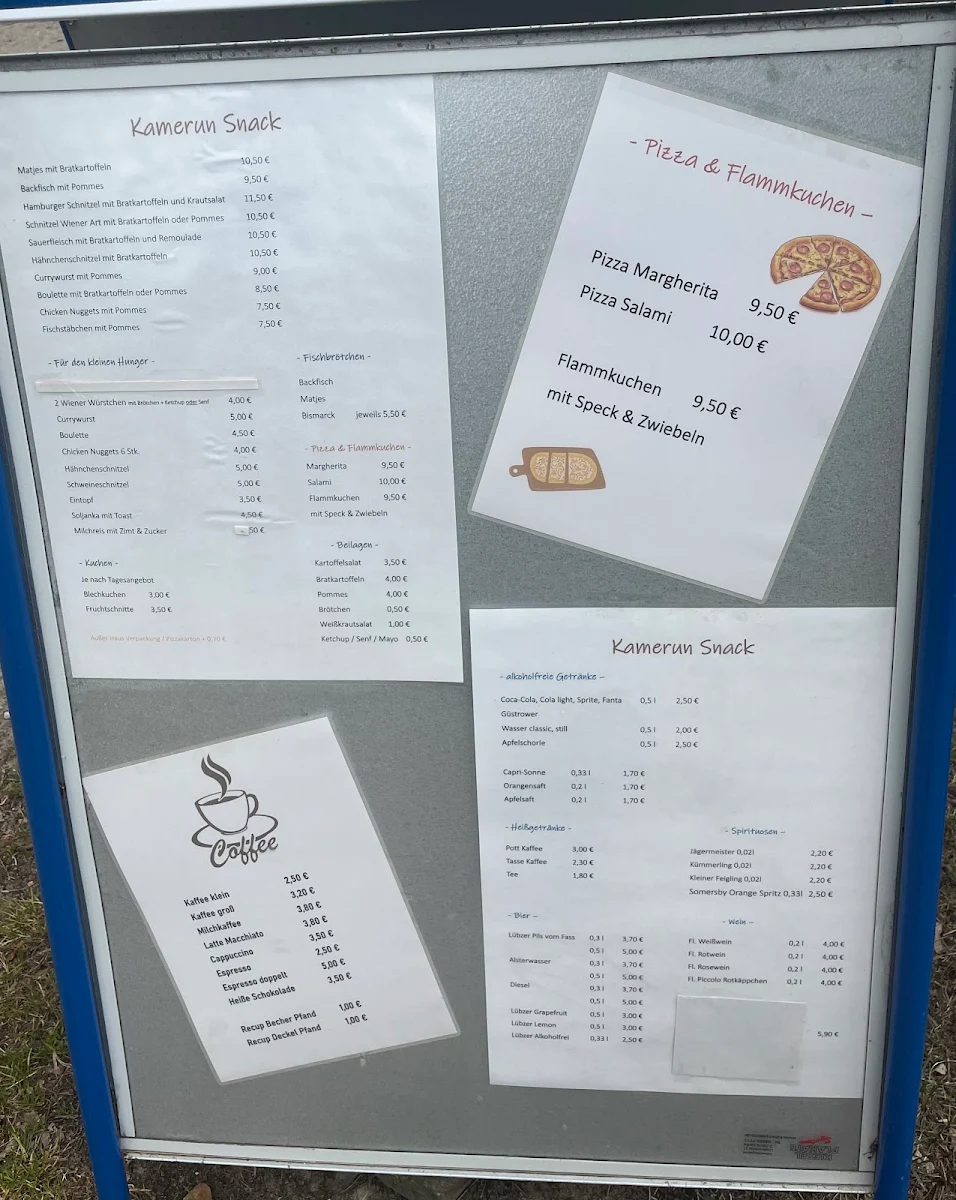 Kamerun Snack
Matjes mit Bratkartoffeln 10,50 €
Backfisch mit Pommes 9,50 €
Hamburger Schnitzel mit Bratkartoffeln und Krautsalat 11,50 €
Schnitzel Wiener Art mit Bratkartoffeln oder Pommes 10,50 €
Sauerfleisch mit Bratkartoffeln und Remoulade 10,50 €
Hähnchenschnitzel mit Bratkartoffeln 10,50 €
Currywurst mit Pommes 9,00 €
Boulette mit Bratkartoffeln oder Pommes 8,50 €
Chicken Nuggets mit Pommes 7,50 €
Fischstäbchen mit Pommes 7,50 €
- Für den kleinen Hunger -
2 Wiener Würstchen mit Brötchen + Ketchup oder Senf 4,00 €
Currywurst 5,00 €
Boulette 4,50 €
Chicken Nuggets 6 Stk. 4,00 €
Hähnchenschnitzel 5,00 €
Schweineschnitzel 5,00 €
Eintopf 3,50 €
Soljanka mit Toast 4,50 €
Milchreis mit Zimt & Zucker 50 €
- Kuchen -
Je nach Tagesangebot
Blechkuchen 3,00 €
Fruchtschnitte 3,50 €
Außer Haus Verpackung / Pizzakarton + 0,70 €
- Fischbrötchen -
Backfisch
Matjes
Bismarck jeweils 5,50 €
- Pizza & Flammkuchen -
Margherita 9,50 €
Salami 10,00 €
Flammkuchen 9,50 €
mit Speck & Zwiebeln
- Beilagen -
Kartoffelsalat 3,50 €
Bratkartoffeln 4,00 €
Pommes 4,00 €
Brötchen 0,50 €
Weißkrautsalat 1,00 €
Ketchup / Senf / Mayo 0,50 €
- Pizza & Flammkuchen -
Pizza Margherita 9,50 €
Pizza Salami 10,00 €
Flammkuchen 9,50 €
mit Speck & Zwiebeln
Coffee
Kaffee klein 2,50 €
Kaffee groß 3,20 €
Milchkaffee 3,80 €
Latte Macchiato 3,80 €
Cappuccino 3,50 €
Espresso 2,50 €
Espresso doppelt 5,00 €
Heiße Schokolade 3,50 €
Recup Becher Pfand 1,00 €
Recup Deckel Pfand 1,00 €
Kamerun Snack
- alkoholfreie Getränke -
Coca-Cola, Cola light, Sprite, Fanta 0,5 l 2,50 €
Güstrower
Wasser classic, still 0,5 l 2,00 €
Apfelschorle 0,5 l 2,50 €
Capri-Sonne 0,33 l 1,70 €
Orangensaft 0,2 l 1,70 €
Apfelsaft 0,2 l 1,70 €
- Heißgetränke -
Pott Kaffee 3,00 €
Tasse Kaffee 2,30 €
Tee 1,80 €
- Spirituosen -
Jägermeister 0,02l 2,20 €
Kümmerling 0,02l 2,20 €
Kleiner Feigling 0,02l 2,20 €
Somersby Orange Spritz 0,33l 2,50 €
- Bier -
Lübzer Pils vom Fass 0,3 l 3,70 €
0,5 l 5,00 €
Alsterwasser 0,3 l 3,70 €
0,5 l 5,00 €
Diesel 0,3 l 3,70 €
0,5 l 5,00 €
Lübzer Grapefruit 0,5 l 3,00 €
Lübzer Lemon 0,5 l 3,00 €
Lübzer Alkoholfrei 0,33 l 2,50 €
- Wein -
Fl. Weißwein 0,2 l 4,00 €
Fl. Rotwein 0,2 l 4,00 €
Fl. Rosewein 0,2 l 4,00 €
Fl. Piccolo Rotkäppchen 0,2 l 4,00 €
5,90 €